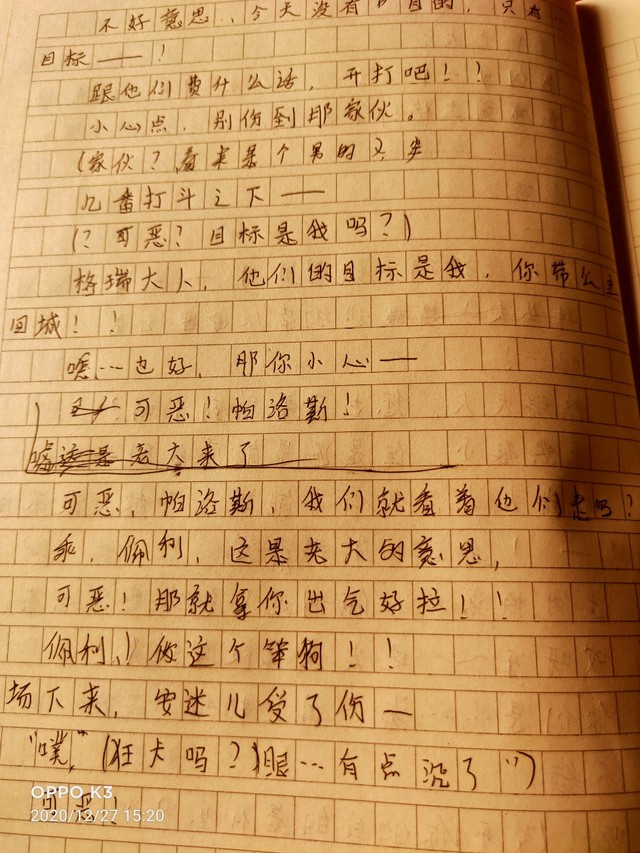 不好意思,今天没有目的,只有
目标——!
跟他们费什么话,开打吧!!
小心点,别伤到那家伙。
(家伙?看来是个男的又
几番打斗之下——
(?可恶?目标是我吗?)
格瑞大人,他们的目标是我,你带公主
回城!!
嗯…也好,那你小心——
可恶!帕洛斯!
老大来了
可恶,帕洛斯,我们就看着他们走吗?
乖,佩利,这是老大的意思,
可恶!那就拿你出气好拉!!
佩利!你这个笨狗!!
场下来,安迷儿受了伤—
“噗,”(狂卡吗?)眼…有点沉了")
可恶!
OPPO K3
2020/12/27 15:20